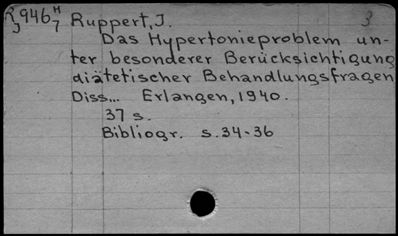 946 H Ruppert, J. 3
J 7
Das Hypertonieproblem un-
ter besonderer Berücksichtigung
diätetischer Behandlungsfragen
Diss... Erlangen, 1940.
37 s.
Bibliogr. s. 34-36